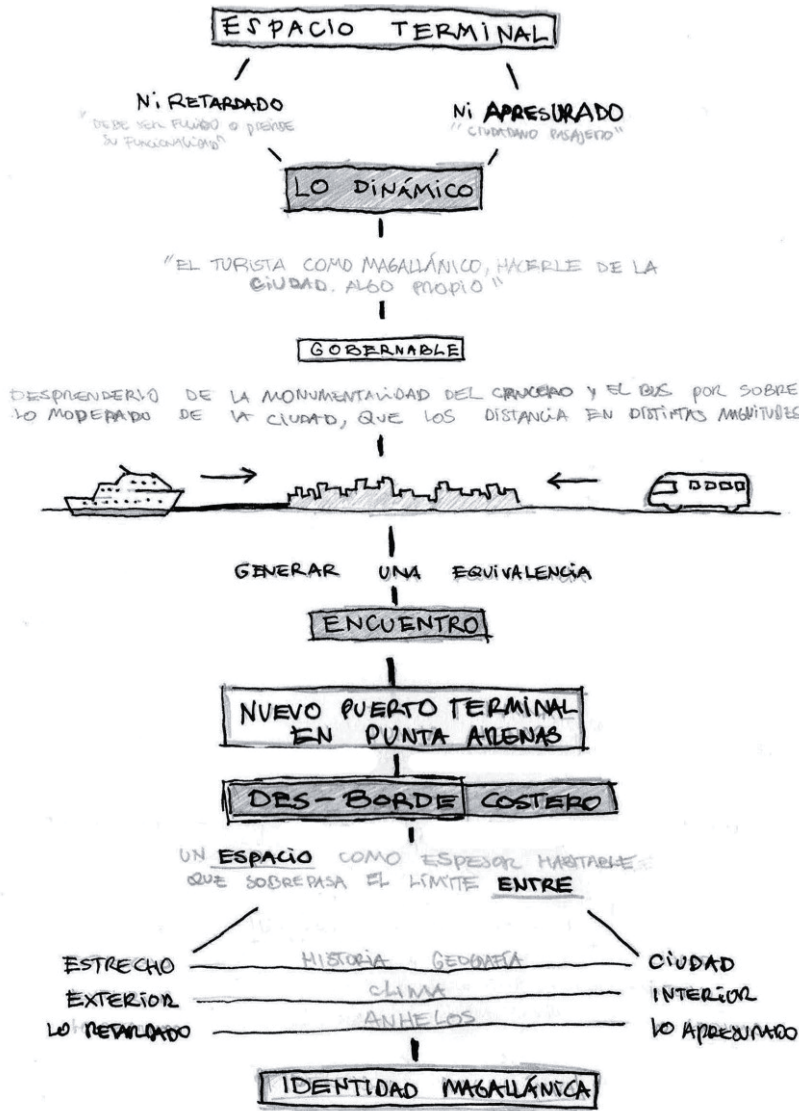 ESPACIO TERMINAL
Ni RETARDADO
"DEBE SER FLUIDO O PIERDE
SU FUNCIONALIDAD"
Ni APRESURADO
"CIUDADANO PASAJERO"
LO DINÁMICO
"EL TURISTA COMO MAGALLÁNICO, HACERLE DE LA
CIUDAD. ALGO PROPIO"
GOBERNABLE
DESPRENDERLO DE LA MONUMENTALIDAD DEL CRUCERO Y EL BUS POR SOBRE
LO MODERADO DE LA CIUDAD, QUE LOS DISTANCIA EN DISTINTAS MAGNITUDES
GENERAR UNA EQUIVALENCIA
ENCUENTRO
NUEVO PUERTO TERMINAL
EN PUNTA ARENAS
DES-BORDE COSTERO
UN ESPACIO COMO ESPESOR HABITABLE
QUE SOBREPASA EL LÍMITE ENTRE
ESTRECHO HISTORIA GEOGRAFÍA CIUDAD
EXTERIOR CLIMA INTERIOR
LO RETARDADO ANHELOS LO APRESURADO
IDENTIDAD MAGALLÁNICA